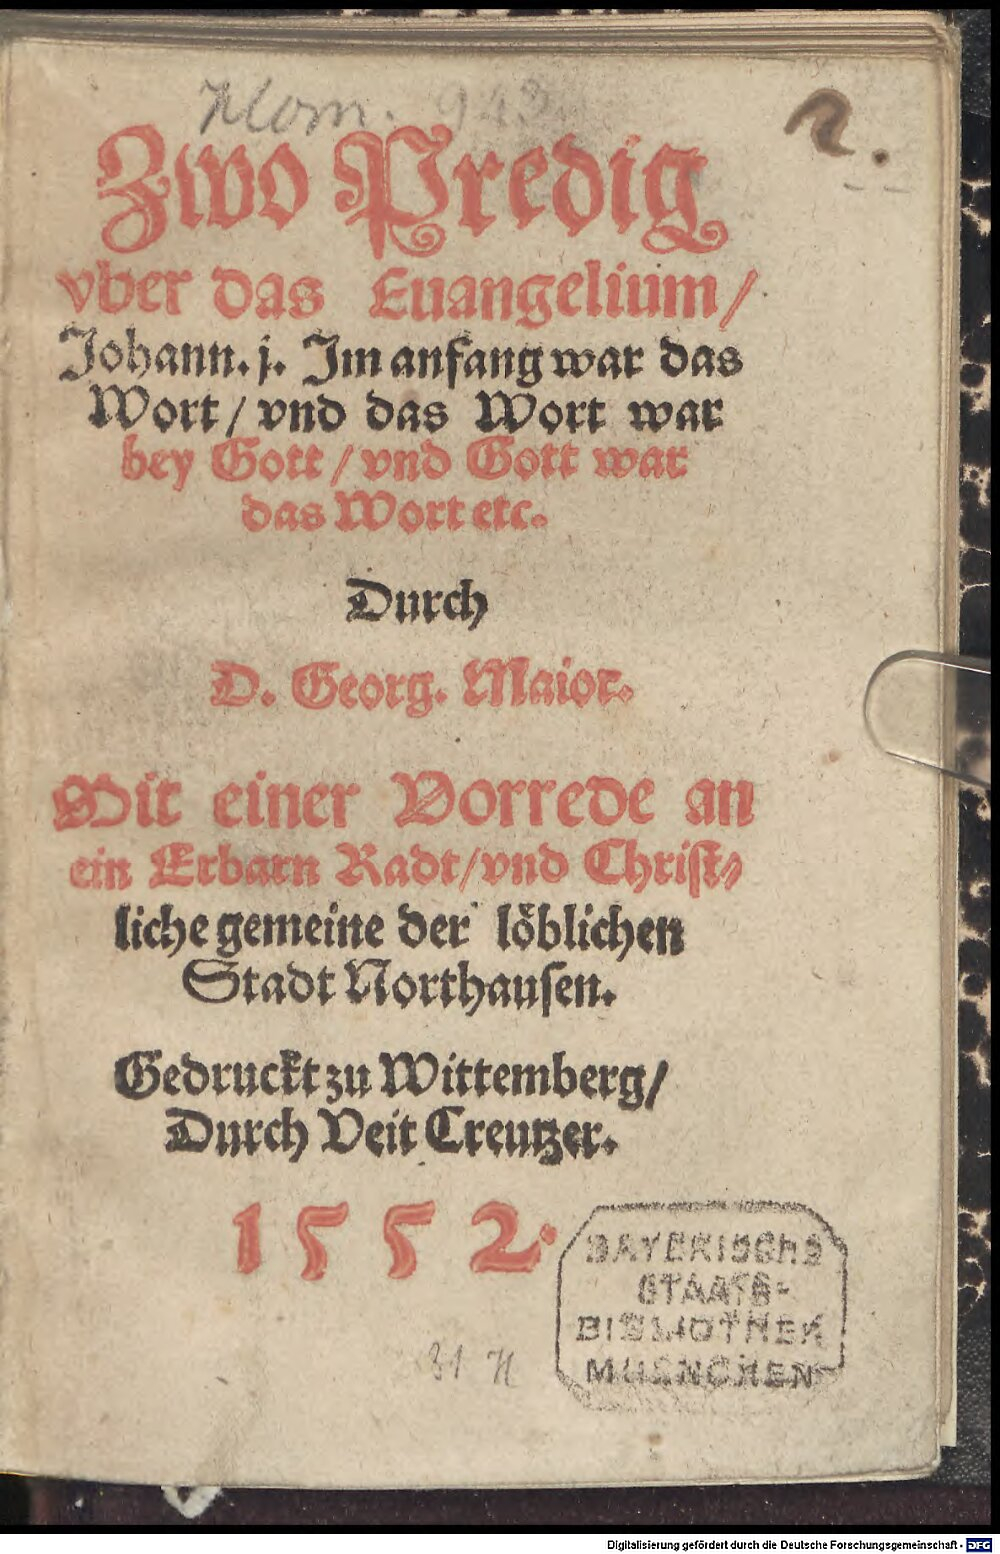 Hom. 943
2.
Zwo Predig
vber das Euangelium/
Johann. j. Im anfang war das
Wort/ vnd das Wort war
bey Gott/ vnd Gott war
das Wort etc.
Durch
D. Georg. Maior.
Mit einer Vorrede an
ein Erbarn Radt/vnd Christ⸗
liche gemeine der löblichen
Stadt Northausen.
Gedruckt zu Wittemberg/
Durch Veit Creutzer.
1552.
BAYERISCHE
STAATS-
BIBLIOTHEK
MUENCHEN
Digitalisierung gefördert durch die Deutsche Forschungsgemeinschaft - DFG